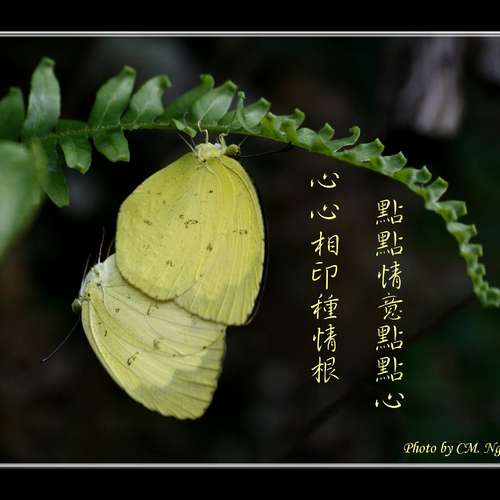 點點情意點點心
心心相印種情根
Photo by CM. Ng